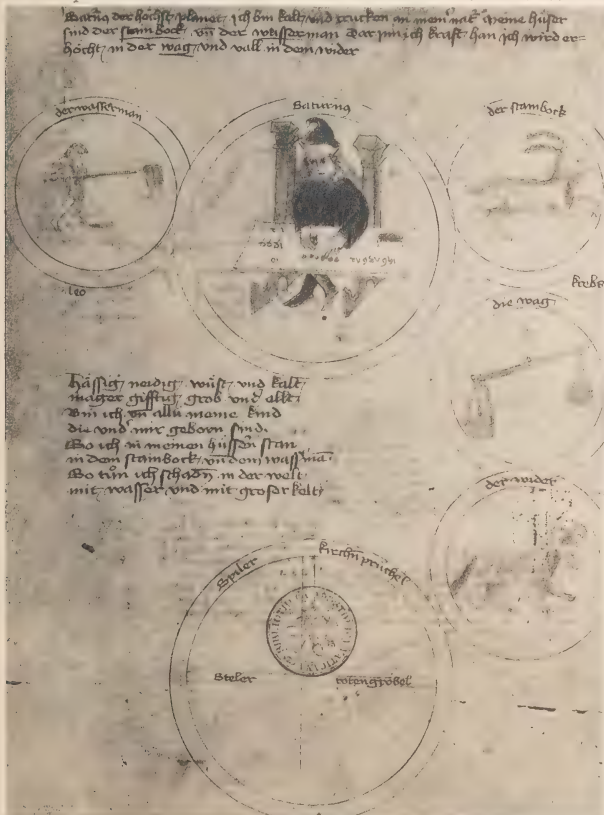 Saturnus der höchst planet ich bin kalt und trucken an mein nat meine hüser
sind der stambock vn der wasserman Dar jnn ich kraft han ich wird er=
höcht in der wag und vall in dem wider
der wasserman
Saturnus
der stambock
leo
krebs
die wag
hässig neidig wüst vnd kalt
mager gifftig grob vnd allt
Bin ich vn allu meine kind
die vnd mir geborn sind
So ich in meinen hüssern stan
in dem stambock vn dem wasſman
So tůn ich schadn in der welt
mit wasser vnd mit groser kelt
der wider
Spiler
kirchn prüchel
Steler
totengröbel